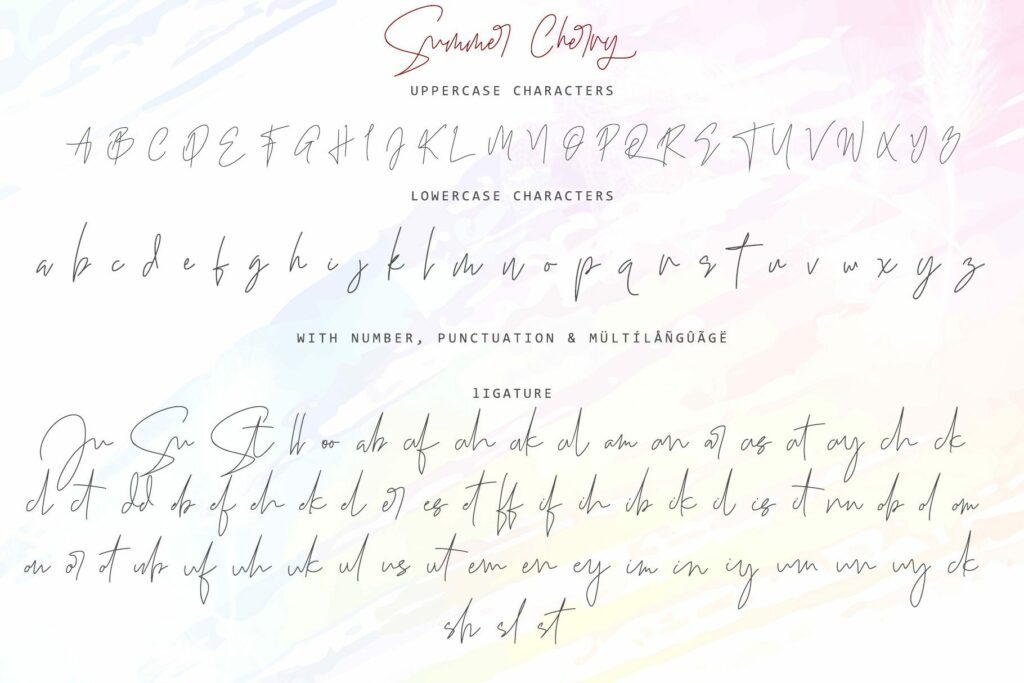 Summer Cherry
UPPERCASE CHARACTERS
A B C D E F G H I J K L M N O P Q R S T U V W X Y Z
LOWERCASE CHARACTERS
a b c d e f g h i j k l m n o p q r s t u v w x y z
WITH NUMBER, PUNCTUATION & MÜLTÍLÅÑGÛÃGË
lIGATURE
Ju Su St ll oo ab af ah ak al am an ar as at ay ch ck
cl ct dd eb ef eh ek el er es et ff if ih ib ik il is it nn ob ol om
on or ot ub uf uh uk ul us ut em en ey im in iy um un uy ck
sh sl st